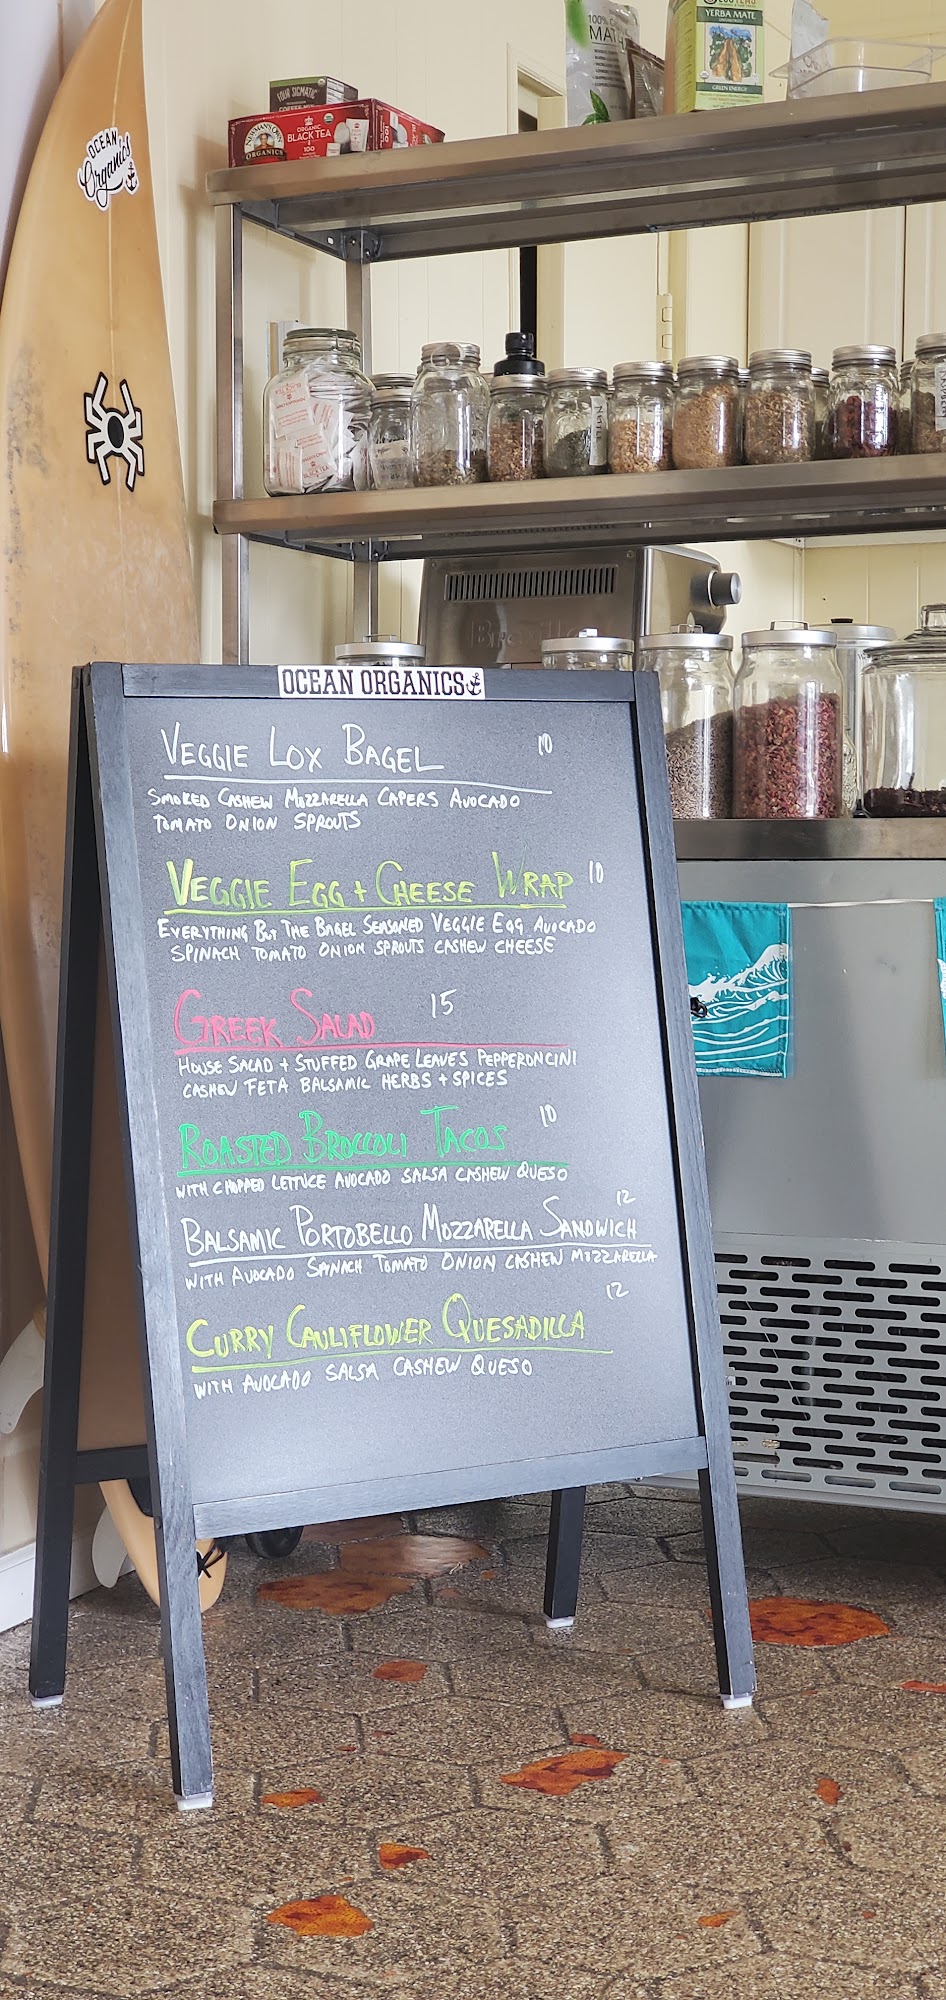 100%
MAT
YERBA MATE
GREEN ENERGY
FOUR SIGMATIC
NEWMAN'S OWN
ORGANICS
ORGANIC
BLACK TEA
100
OCEAN
Organics
OCEAN ORGANICS
VEGGIE LOX BAGEL 10
SMOKED CASHEW MOZZARELLA CAPERS AVOCADO
TOMATO ONION SPROUTS
VEGGIE EGG + CHEESE WRAP 10
EVERYTHING BUT THE BAGEL SEASONED VEGGIE EGG AVOCADO
SPINACH TOMATO ONION SPROUTS CASHEW CHEESE
GREEK SALAD 15
HOUSE SALAD + STUFFED GRAPE LEAVES PEPPERONCINI
CASHEW FETA BALSAMIC HERBS + SPICES
ROASTED BROCCOLI TACOS 10
WITH CHOPPED LETTUCE AVOCADO SALSA CASHEW QUESO
BALSAMIC PORTOBELLO MOZZARELLA SANDWICH 12
WITH AVOCADO SPINACH TOMATO ONION CASHEW MOZZARELLA
CURRY CAULIFLOWER QUESADILLA 12
WITH AVOCADO SALSA CASHEW QUESO